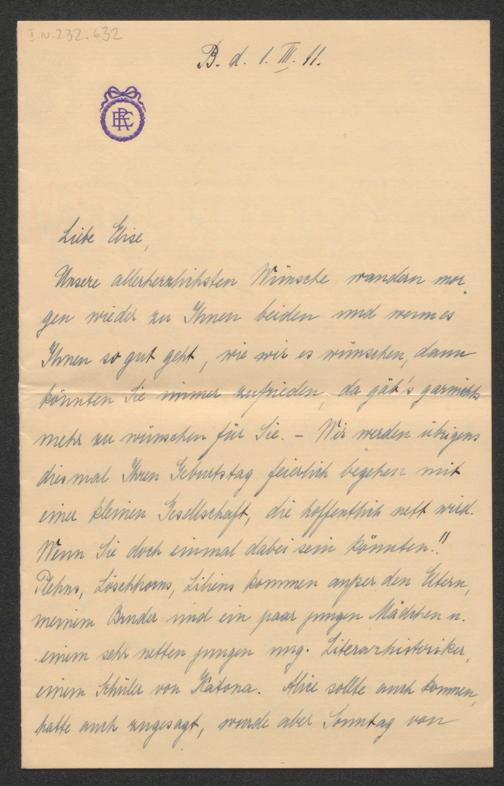 I N. 232.632
B. d. 1. III. 11.
Liebe Elise,
Unsere allerherzlichsten Wünsche wandern mor
gen wieder zu Ihnen beiden und wenn es
Ihnen so gut geht, wie wir es wünschen, dann
könnten Sie immer zufrieden, da gäb's garnichts
mehr zu wünschen für Sie. – Wir werden übrigens
diesmal Ihren Geburtstag feierlich begehen mit
einer kleinen Gesellschaft, die hoffentlich nett wird.
Wenn Sie doch einmal dabei sein könnten!!
Plehns, Löschhorns, kommen außer den Eltern,
meinem Bruder und ein paar jungen Mädchen u.
einem sehr netten jungen ung. Literarhistoriker,
einem Schüler von Katona. Alice sollte auch kommen,
hatte auch zugesagt, wurde aber Sonntag von